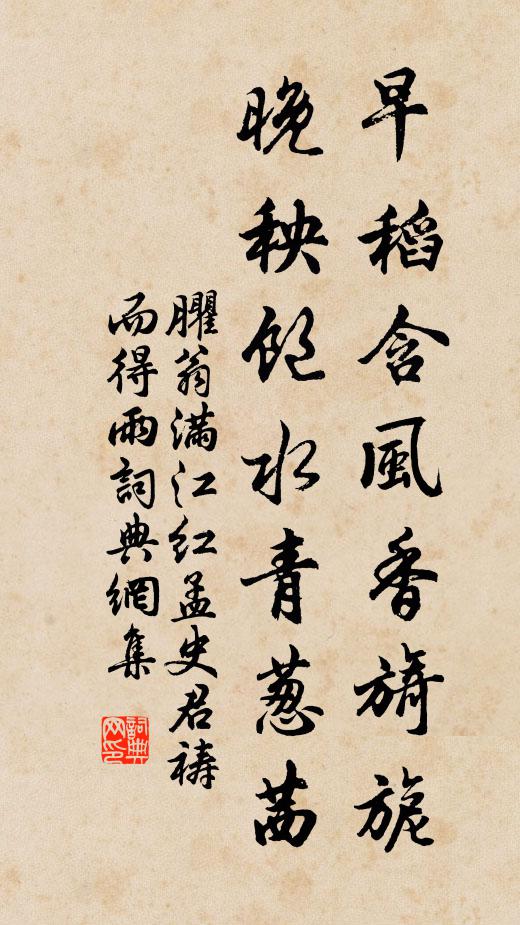 早稻含風香旖旎
晚秧飽水青葱茜
臞翁滿江红孟史君禱
而得雨詞典網集
詞典网印